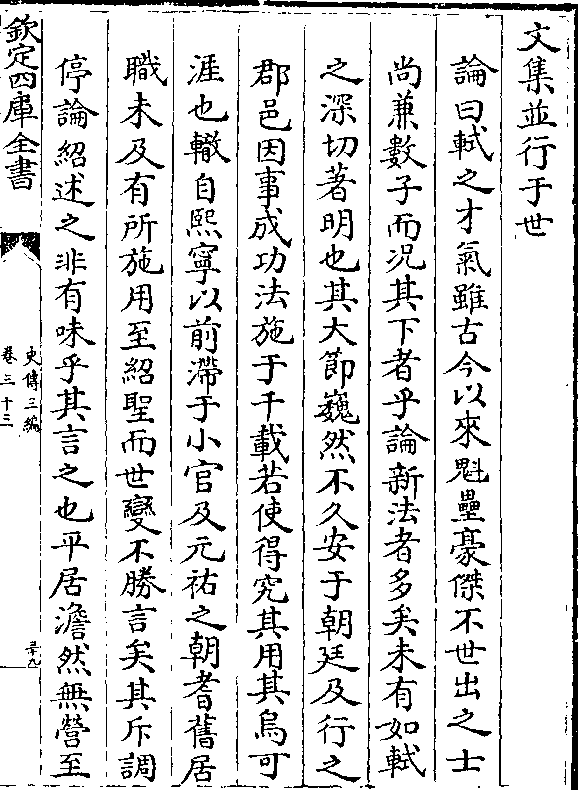 文集並行于世
論曰軾之才氣雖古今以來魁壘豪傑不世出之士
尚兼數子而況其下者乎論新法者多矣未有如軾
之深切著明也其大節巍然不久安于朝廷及行之
郡邑因事成功法施于千載若使得究其用其烏可
涯也轍自熙寧以前滯于小官及元祐之朝耆舊居
職未及有所施用至紹聖而世變不勝言矣其斥調
停論紹述之非有味乎其言之也平居澹然無營至
欽定四庫全書
史傳三編
卷三十三